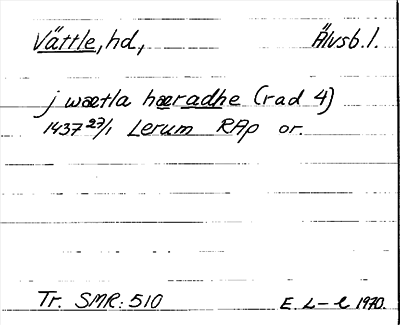 Vättle, hd, Älvsb. l.
j wætla hæradhe (rad 4)
1437 27/1 Lerum RAp or.
Tr. SMR: 510 E. L-l 1970.